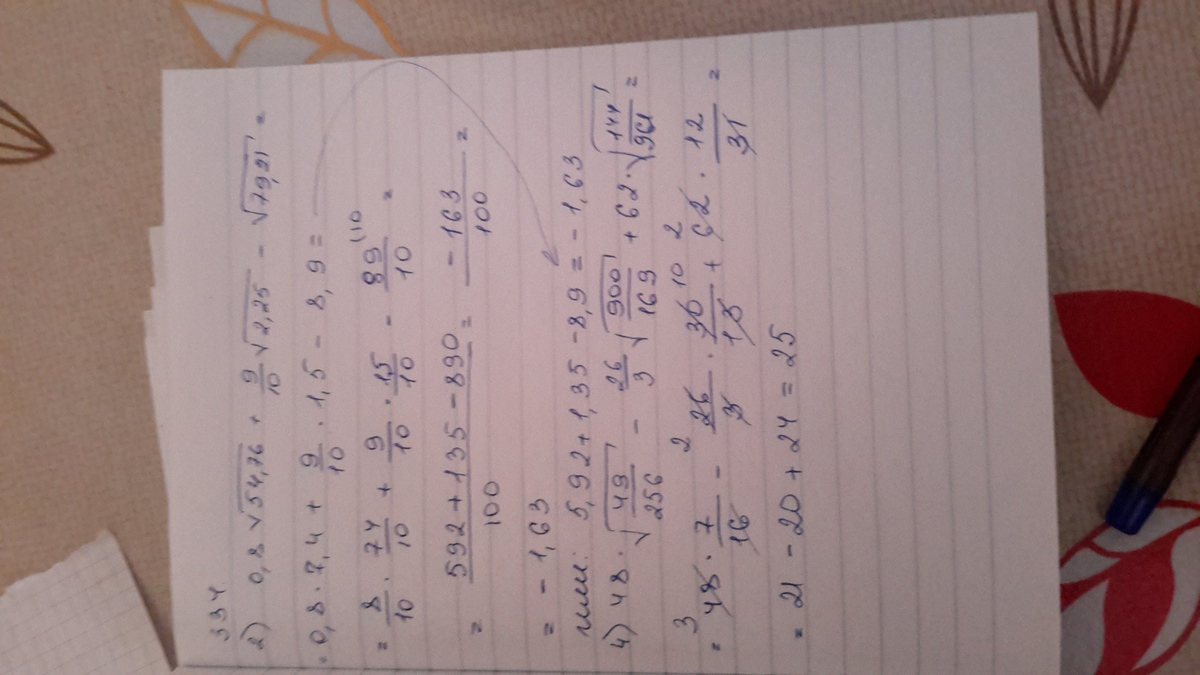 334.
2) 0,8√54,76 + 9/10 √2,25 - √79,21 =
= 0,8 · 7,4 + 9/10 · 1,5 - 8,9 =
= 8/10 · 74/10 + 9/10 · 15/10 - 89/10 (10 =
= (592 + 135 - 890)/100 = -163/100 =
= - 1,63
или: 5,92 + 1,35 - 8,9 = - 1,63
4) 48 · √(49/256) - 26/3 √(900/169) + 62 · √(144/961) =
= 3 48 · 7/16 - 2 26/3 · 30 10/13 + 62 2 · 12/31 =
= 21 - 20 + 24 = 25